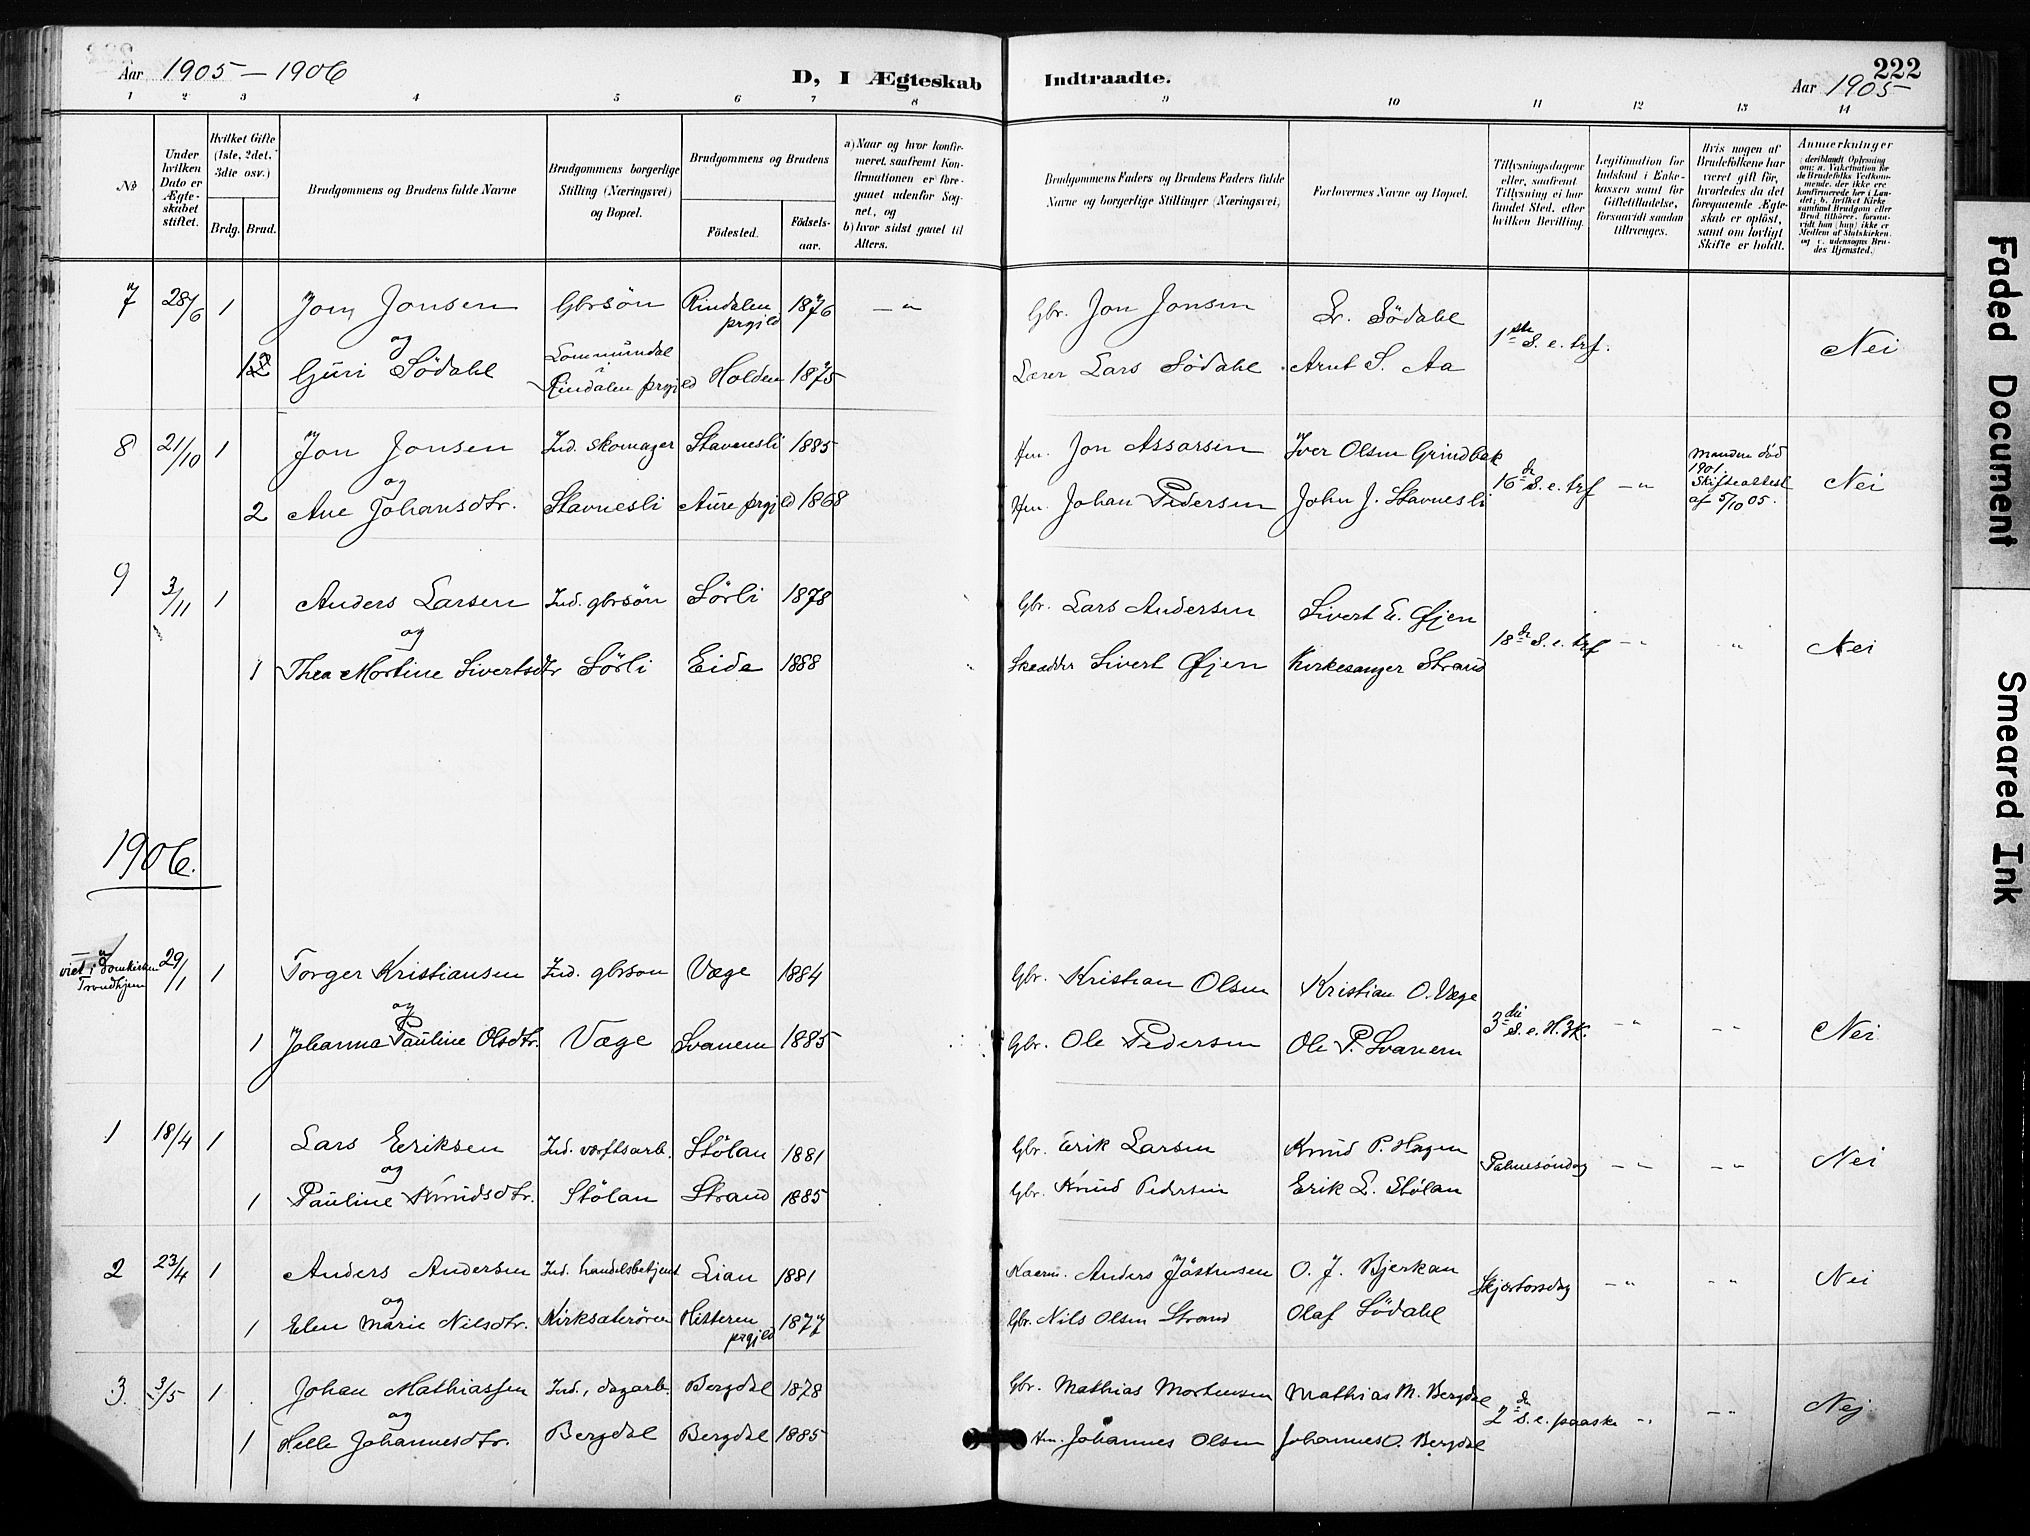 Aar 1905 — 1906
D, I Ægteskab Indtraadte.
222
Aar 1905
1 2 3 4 5 6 7 8 9 10 11 12 13 14
No
Under hvilken Dato er Ægteskabet stiftet.
Hvilket Gifte (1ste, 2det, 3die osv.)
Brdg. Brud.
Brudgommens og Brudens fulde Navne
Brudgommens borgerlige Stilling (Næringsvei) og Bopæl.
Brudgommens og Brudens
Fødested.
Fødselsaar.
a) Naar og hvor konfirmeret, saafremt Konfirmationen er foregaaet udenfor Sognet, og
b) hvor sidst gaaet til Alters.
Brudgommens Faders og Brudens Faders fulde Navne og borgerlige Stillinger (Næringsvei)
Forlovernes Navne og Bopæl.
Tillysningsdagene eller, saafremt Tillysning ei har fundet Sted, efter hvilken Bevilling.
Legitimation for Indskud i Enkekassen samt for Giftetilladelse, forsaavidt saadan tiltrænges.
Hvis nogen af Brudefolkene har været gift før, hvorledes da det foregaaende Ægteskab er opløst, samt om lovligt Skifte er holdt.
Anmerkninger
7 28/6 1 Jon Jonsen Gbrsøn Rindalen prgjld 1876 — " Gbr. Jon Jonsen Lr. Södahl 1ste S. e. trf. Nei
og
12 Guri Södahl Lommundal i Rindalen prgjeld Holden 1875 Lærer Lars Södahl Arnt S. Aa
8 21/10 1 Jon Jonsen Ind. skomager Stavnesli 1885 Hm. Jon Assarsen Iver Olsen Grindbak 16de S. e. trf — " Manden död 1901. Skifteattest af 5/10 05. Nei
og
2 Ane Johansdtr. Stavnesli Aure prgjld 1868 Hm. Johan Pedersen John J. Stavnesli
9 3/11 1 Anders Larsen Ind. gbrsøn Sörli 1878 Gbr. Lars Andersen Sivert E. Øjen 18de S. e. trf — " " Nei
og
1 Thea Martine Sivertsdtr Sörli Eide 1888 Skrædder Sivert Øjen Kirkesanger Strand
1906.
viet i Domkirken Trondhjem 29/1 1 Torger Kristiansen Ind. gbrson Væge 1884 Gbr. Kristian Olsen Kristian O. Væge 3die S. e. H. 3K. — " — " Nei
og
1 Johanna Pauline Olsdtr. Væge Svanem 1885 Gbr. Ole Pedersen Ole P. Svanem
1 18/4 1 Lars Eriksen Ind. værftsarb. Stölan 1881 Gbr. Erik Larsen Knud P. Hagen Palmesöndag — " — " Nei
og
1 Pauline Knudsdtr. Stölan Strand 1885 Gbr. Knud Pedersen Erik L. Stölan
2 23/4 1 Anders Andersen Ind. handelsbetjent Lian 1881 Anders Jöstensen O. J. Bjerkan Skjærtorsdag — " — " Nei
og
1 Elen Marie Nilsdtr. Kirksæterören Hitteren prgjld 1877 Gbr. Nils Olsen Strand Olaf Södahl
3 3/5 1 Johan Mathiassen Ind., dagarb. Bergdal 1878 Gbr. Mathias Mortensen Mathias M. Bergdal 2den S. e. paaske " — " Nej
og
1 Helle Johannesdtr. Bergdal Bergdal 1885 Hm. Johannes Olsen Johannes O. Bergdal
Faded Document
Smeared Ink